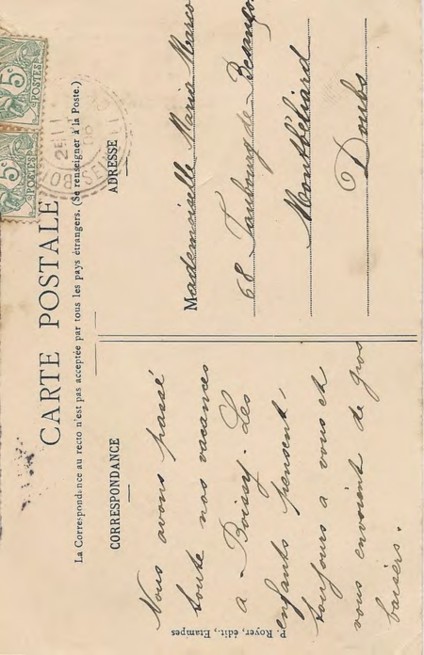 CARTE POSTALE
La Correspondance au recto n'est pas acceptée par tous les pays étrangers. (Se renseigner à la Poste.)
CORRESPONDANCE
Nous avons passé
toute nos vacances
a Boissy. Les
enfants pensent
toujours a vous et
vous envoient de gros
baisers.
ADRESSE
Mademoiselle Maria
68 Faubourg de Besançon
Montbéliard
Doubs
P. Royer, édit., Etampes
5c
POSTES
5c
POSTES